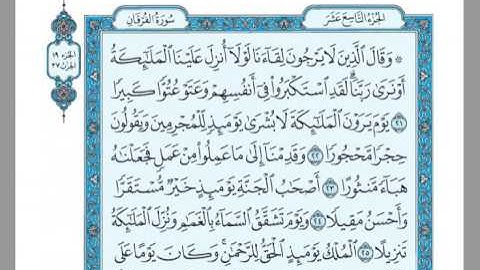 سُورَةُ الفُرْقَانِ
الجُزْءُ التَّاسِعَ عَشَرَ
الجزء ١٩
الحزب ٣٧
۞ وَقَالَ ٱلَّذِينَ لَا يَرْجُونَ لِقَآءَنَا لَوْلَآ أُنزِلَ عَلَيْنَا ٱلْمَلَٰٓئِكَةُ
أَوْ نَرَىٰ رَبَّنَا ۗ لَقَدِ ٱسْتَكْبَرُوا۟ فِىٓ أَنفُسِهِمْ وَعَتَوْ عُتُوًّا كَبِيرًا
٢١ يَوْمَ يَرَوْنَ ٱلْمَلَٰٓئِكَةَ لَا بُشْرَىٰ يَوْمَئِذٍ لِّلْمُجْرِمِينَ وَيَقُولُونَ
حِجْرًا مَّحْجُورًا ٢٢ وَقَدِمْنَآ إِلَىٰ مَا عَمِلُوا۟ مِنْ عَمَلٍ فَجَعَلْنَٰهُ
هَبَآءً مَّنثُورًا ٢٣ أَصْحَٰبُ ٱلْجَنَّةِ يَوْمَئِذٍ خَيْرٌ مُّسْتَقَرًّا
وَأَحْسَنُ مَقِيلًا ٢٤ وَيَوْمَ تَشَقَّقُ ٱلسَّمَآءُ بِٱلْغَمَٰمِ وَنُزِّلَ ٱلْمَلَٰٓئِكَةُ
تَنزِيلًا ٢٥ ٱلْمُلْكُ يَوْمَئِذٍ ٱلْحَقُّ لِلرَّحْمَٰنِ ۚ وَكَانَ يَوْمًا عَلَى